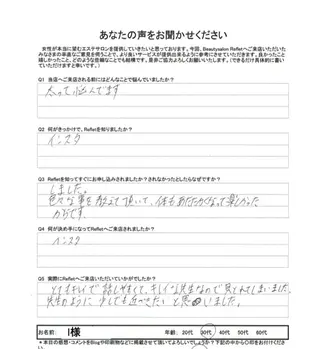 あなたの声をお聞かせください
女性が本当に望むエステサロンを提供していきたいと思っております。今回、Beautysalon Refletへご来店いただいた
みなさまの率直なご意見を伺うことで、より良いサービスが提供出来るように参考にさせていただきます。良かったこと
嬉しかったこと、どのような些細なことでも結構です。是非ご協力よろしくお願いいたします。(できるだけ具体的に書い
ていただけますと幸いです。)
Q1 当店へご来店される前にはどんなことで悩んでいましたか?
太って悩んでます
Q2 何がきっかけで、Refletを知りましたか?
インスタ
Q3 Refletを知ってすぐにお申し込みされましたか?されなかったとしたらなぜですか?
しました。
色々な事を教えて頂いて、体もあたたかくなって楽しかった
からです。
Q4 何が決め手になってRefletへご来店されましたか?
インスタ
Q5 実際にRefletへご来店いただいていかがでしたか?
とてもキレイで話しやすくて、キレイな先生なので見とれてしまいました。
先生のように少しでも近づきたいと思いました。
お名前: I様 年齢: 20代 30代 40代 50代 60代
*本日の感想・コメントをBlogや印刷物などに掲載させて頂いてよろしいでしょうか?下記の中から○印をお付けください